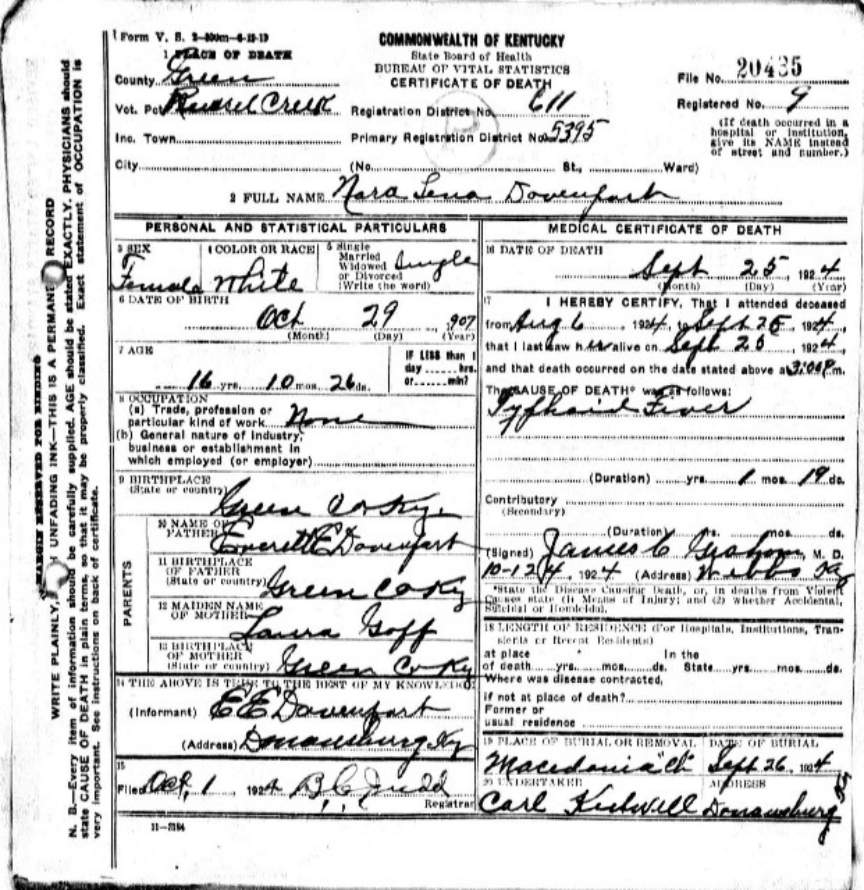 Form V. S. 2-300m-6-12-19
COMMONWEALTH OF KENTUCKY
State Board of Health
BUREAU OF VITAL STATISTICS
CERTIFICATE OF DEATH
1 PLACE OF DEATH
County Green
Vot. Pct Russel Creek
Inc. Town
City
Registration District No. 611
Primary Registration District No. 5395
(No. St., Ward)
File No. 20435
Registered No. 9
(If death occurred in a
hospital or institution,
give its NAME instead
of street and number.)
2 FULL NAME Nora Lena Davenport
PERSONAL AND STATISTICAL PARTICULARS
3 SEX
Female
4 COLOR OR RACE
White
5 Single
Married
Widowed
or Divorced
(Write the word)
Single
6 DATE OF BIRTH
Oct 29, 1907
(Month) (Day) (Year)
7 AGE
16 yrs. 10 mos. 26 ds.
IF LESS than 1
day hrs.
or min?
8 OCCUPATION
(a) Trade, profession or
particular kind of work None
(b) General nature of Industry,
business or establishment in
which employed (or employer)
9 BIRTHPLACE
(State or country)
Green Co Ky.
PARENTS
10 NAME OF
FATHER
Everett E Davenport
11 BIRTHPLACE
OF FATHER
(State or country) Green Co Ky
12 MAIDEN NAME
OF MOTHER
Laura Goff
13 BIRTHPLACE
OF MOTHER
(State or country) Green Co Ky
14 THE ABOVE IS TRUE TO THE BEST OF MY KNOWLEDGE
(Informant) E E Davenport
(Address) Donansburg Ky
15
Filed Oct, 1 1924 B. C. Judd
Registrar
11-3184
MEDICAL CERTIFICATE OF DEATH
16 DATE OF DEATH
Sept 25, 1924
(Month) (Day) (Year)
17 I HEREBY CERTIFY, That I attended deceased
from Aug 6, 1924, to Sept 25, 1924,
that I last saw her alive on Sept 25, 1924,
and that death occurred on the date stated above at 3:05P m.
The CAUSE OF DEATH* was as follows:
Tyfhoid Fever
(Duration) yrs. 1 mos. 19 ds.
Contributory
(Secondary)
(Duration) yrs. mos. ds.
(Signed) James C Graham, M. D.
10-12 4, 1924 (Address) Webbs Ky
*State the Disease Causing Death, or, in deaths from Violent
Causes state (1) Means of Injury; and (2) whether Accidental,
Suicidal or Homicidal.
18 LENGTH OF RESIDENCE (For Hospitals, Institutions, Tran-
sients or Recent Residents)
at place In the
of death yrs. mos. ds. State yrs. mos. ds.
Where was disease contracted,
if not at place of death?
Former or
usual residence
19 PLACE OF BURIAL OR REMOVAL DATE OF BURIAL
Macedonia Ch Sept 26, 1924
20 UNDERTAKER ADDRESS
Carl Donansburg Ky
MARGIN RESERVED FOR BINDING
WRITE PLAINLY, WITH UNFADING INK—THIS IS A PERMANENT RECORD
N. B.—Every item of information should be carefully supplied. AGE should be stated EXACTLY. PHYSICIANS should
state CAUSE OF DEATH in plain terms, so that it may be properly classified. Exact statement of OCCUPATION is
very important. See instructions on back of certificate.